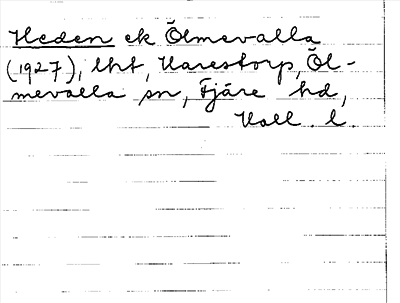 Heden ek Ölmevalla
(1927), lht, Varestorp, Öl-
mevalla sn, Fjäre hd,
Hall. l.